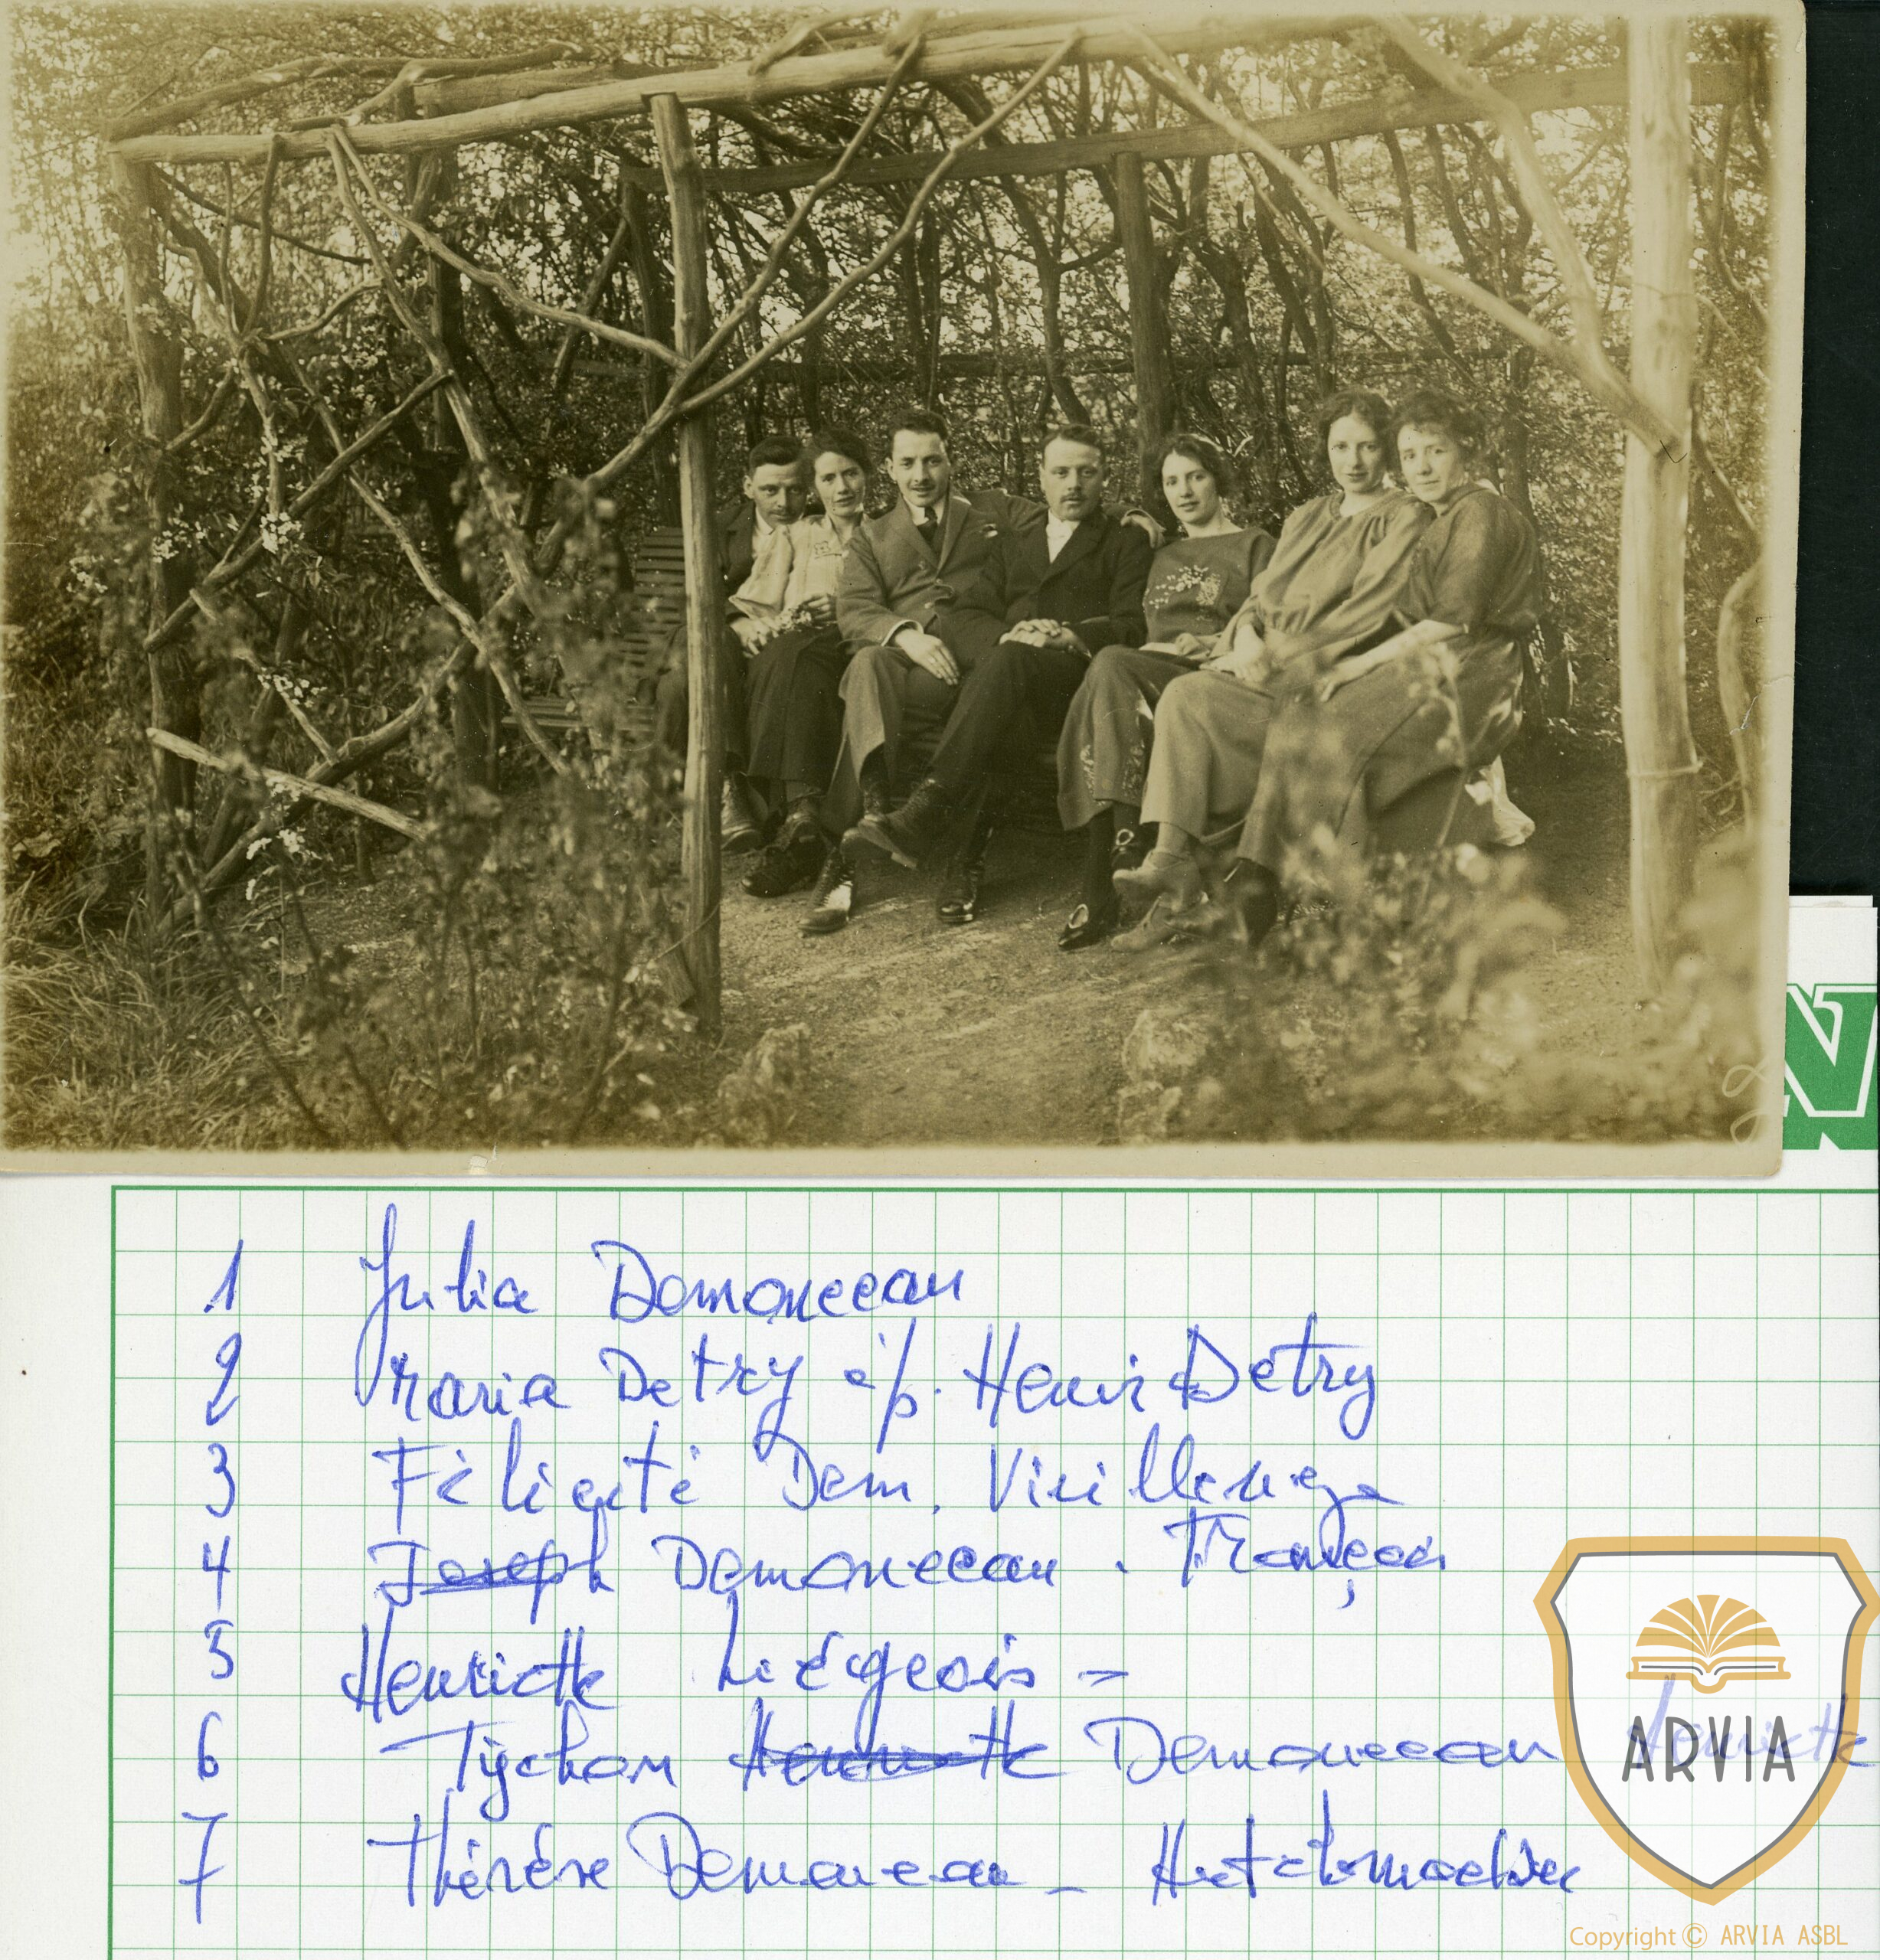 N
1 Julia Demonceau
2 Maria Detry ép. Henri Detry
3 Félicité Dem. Vieillevoye
4 Joseph Demonceau . François
5 Henriette Liégeois -
6 Tychon Henriette Demonceau Henriette
7 Thérèse Demonceau -
ARVIA
Copyright © ARVIA ASBL